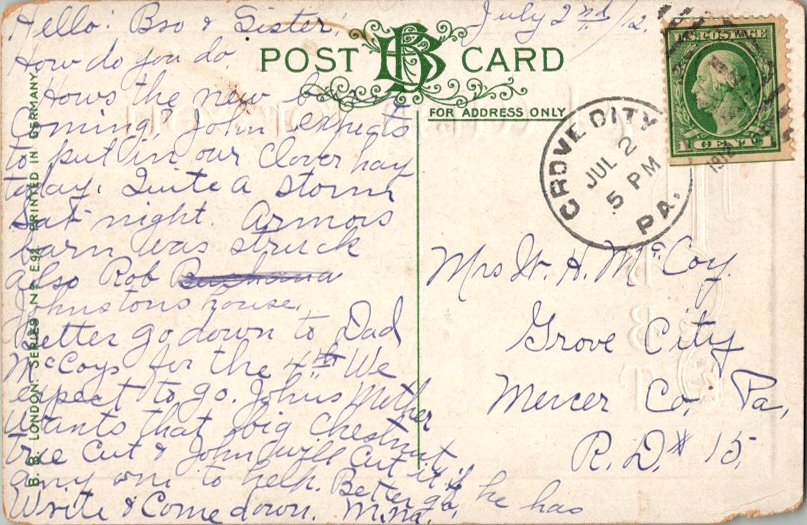 Hello: Bro & Sister!
July 2nd/12.
How do you do.
POST CARD
BB
Hows the new barn
FOR ADDRESS ONLY
Coming. John expects
to put in our Clover hay
today. Quite a storm
Sat- night. Armors
barn was struck
also Rob
Johnstons house.
Better go down to Dad
McCoys for the 4th We
expect to go. Johns Mother
wants that big Chestnut
tree Cut & John will cut it if
any one to help. Better go, he has
Write & Come down. M.M.
U.S. POSTAGE
1 CENT
GROVE CITY
JUL 2
5 PM
PA.
1912
Mrs W. H. McCoy.
Grove City
Mercer Co, Pa,
R.D.# 15.
B. B. LONDON. SERIES No E.92 PRINTED IN GERMANY